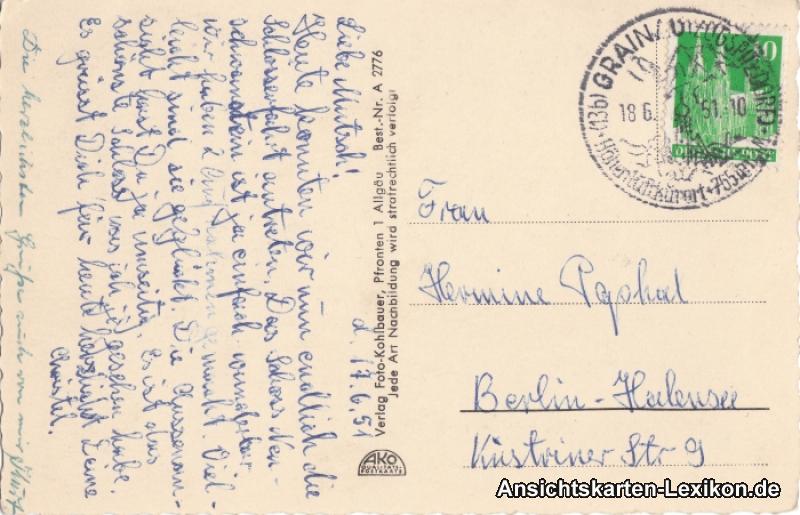 d. 17.6.51
Liebe Mutsch!
Heute konnten wir nun endlich die
Schlösserfahrt antreten. Das Schloss Neu-
schwanstein ist ja einfach wunderbar.
Wir haben 2 Aufnahmen gemacht. Viel-
leicht sind sie geglückt. Die Aussenan-
sicht hast Du ja unseitig. Es ist das
schönste Schloss was ich je gesehen habe.
Es grüsst Dich für heute herzlichst Deine
Christel.
Die herzlichsten Grüße auch von mir Kurt
Verlag Foto-Kohlbauer, Pfronten 1 Allgäu Best.-Nr. A 2776
Jede Art Nachbildung wird strafrechtlich verfolgt
AKO
QUALITÄTS-
POSTKARTE
(13b) GRAINAU
18.6.51.-10
Höhenluftkurort
10
Frau
Hermine
Berlin-Halensee
Küstriner Str 9
Ansichtskarten-Lexikon.de